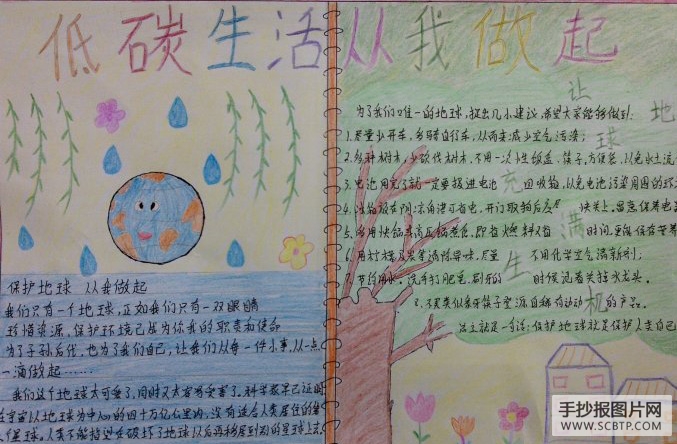 低碳生活从我做起
保护地球 从我做起
我们只有一个地球,正如我们只有一双眼睛
珍惜资源,保护环境已成为你我的职责和使命
为了子孙后代,也为了我们自己,让我们从每一件小事,从一点
一滴做起……
我们这个地球太可爱了,同时又太容易受害了。科学家早已证明
在宇宙以地球为中心的四十万亿公里内,没有适合人类居住的第
二个星球。人类不能指望在破坏了地球以后再移居到别的星球上去
让地球充满生机
为了我们唯一的地球,提出几小建议,希望大家能够做到:
1.尽量少开车,多骑自行车,从而来减少空气污染;
2.多种树木,少砍伐树木,不用一次性饭盒、筷子,方便袋,以免水土流
3.电池用完了就一定要投进电池回收箱,以免电池污染周围的环
4.冰箱放在阴凉角落可省电,开门取物后应快关上,温度保养电
5.多用快锅或高压锅煮食,即省燃料又省时间,更能保存营养
6.用柠檬及炭等消除异味,尽量不用化学空气清新剂;
7.节约用水,洗手打肥皂、刷牙的时候记着关掉水龙头。
8.不买类似象牙筷子等源自稀有动物的产品。
总之就是一句话:保护地球就是保护人类自己
手抄报图片网
WWW.SCBTP.COM